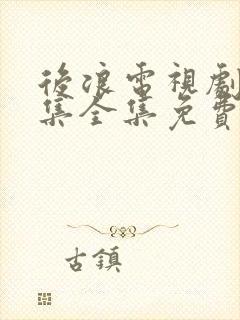 後浪電視劇
集全集免費
古鎮